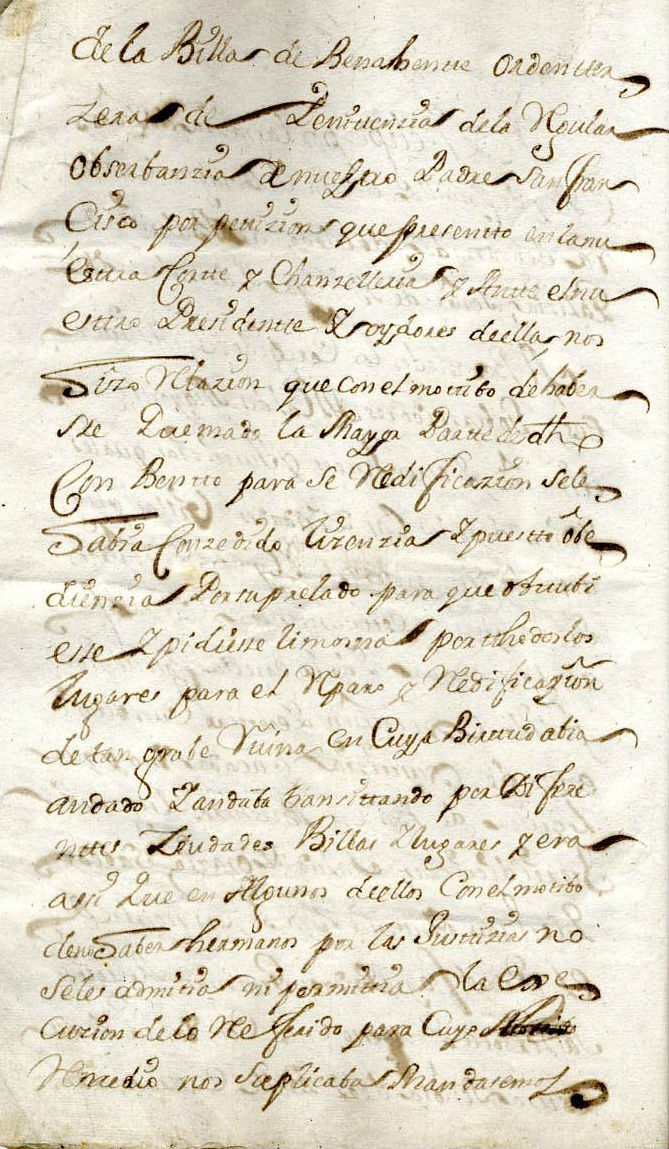 de la Billa de Benabente orden ter
zera de Penitenzia de la Regular
Obserbanzia de nuestro Padre san fran
Cisco por petizion que presentto en la nu
estra Cortte y Chanzelleria y Antte el nu
estro Presidentte y oydores de ella nos
hizo Relazion que con el motibo de haber
sse Quemado la Mayor Partte de dho
Con Bentto para se Redificazion se le
habia Conzedido lizenzia y puestto obe
dienzia Por su prelado para que estubi
esse y pidiesse limosna por tthodos los
lugares para el Reparo y Redificazion
de tan grabe Ruina en Cuya Birttud abia
andado y andaba transittando por Difere
nttes Ziudades Billas y lugares y era
assi Que en Algunos de ellos Con el motibo
de no haber hermanos por las Justizias no
se les admitia ni permitia la exe
cuzion de lo Referido para Cuyo
Remedio nos suplicaba Mandasemos